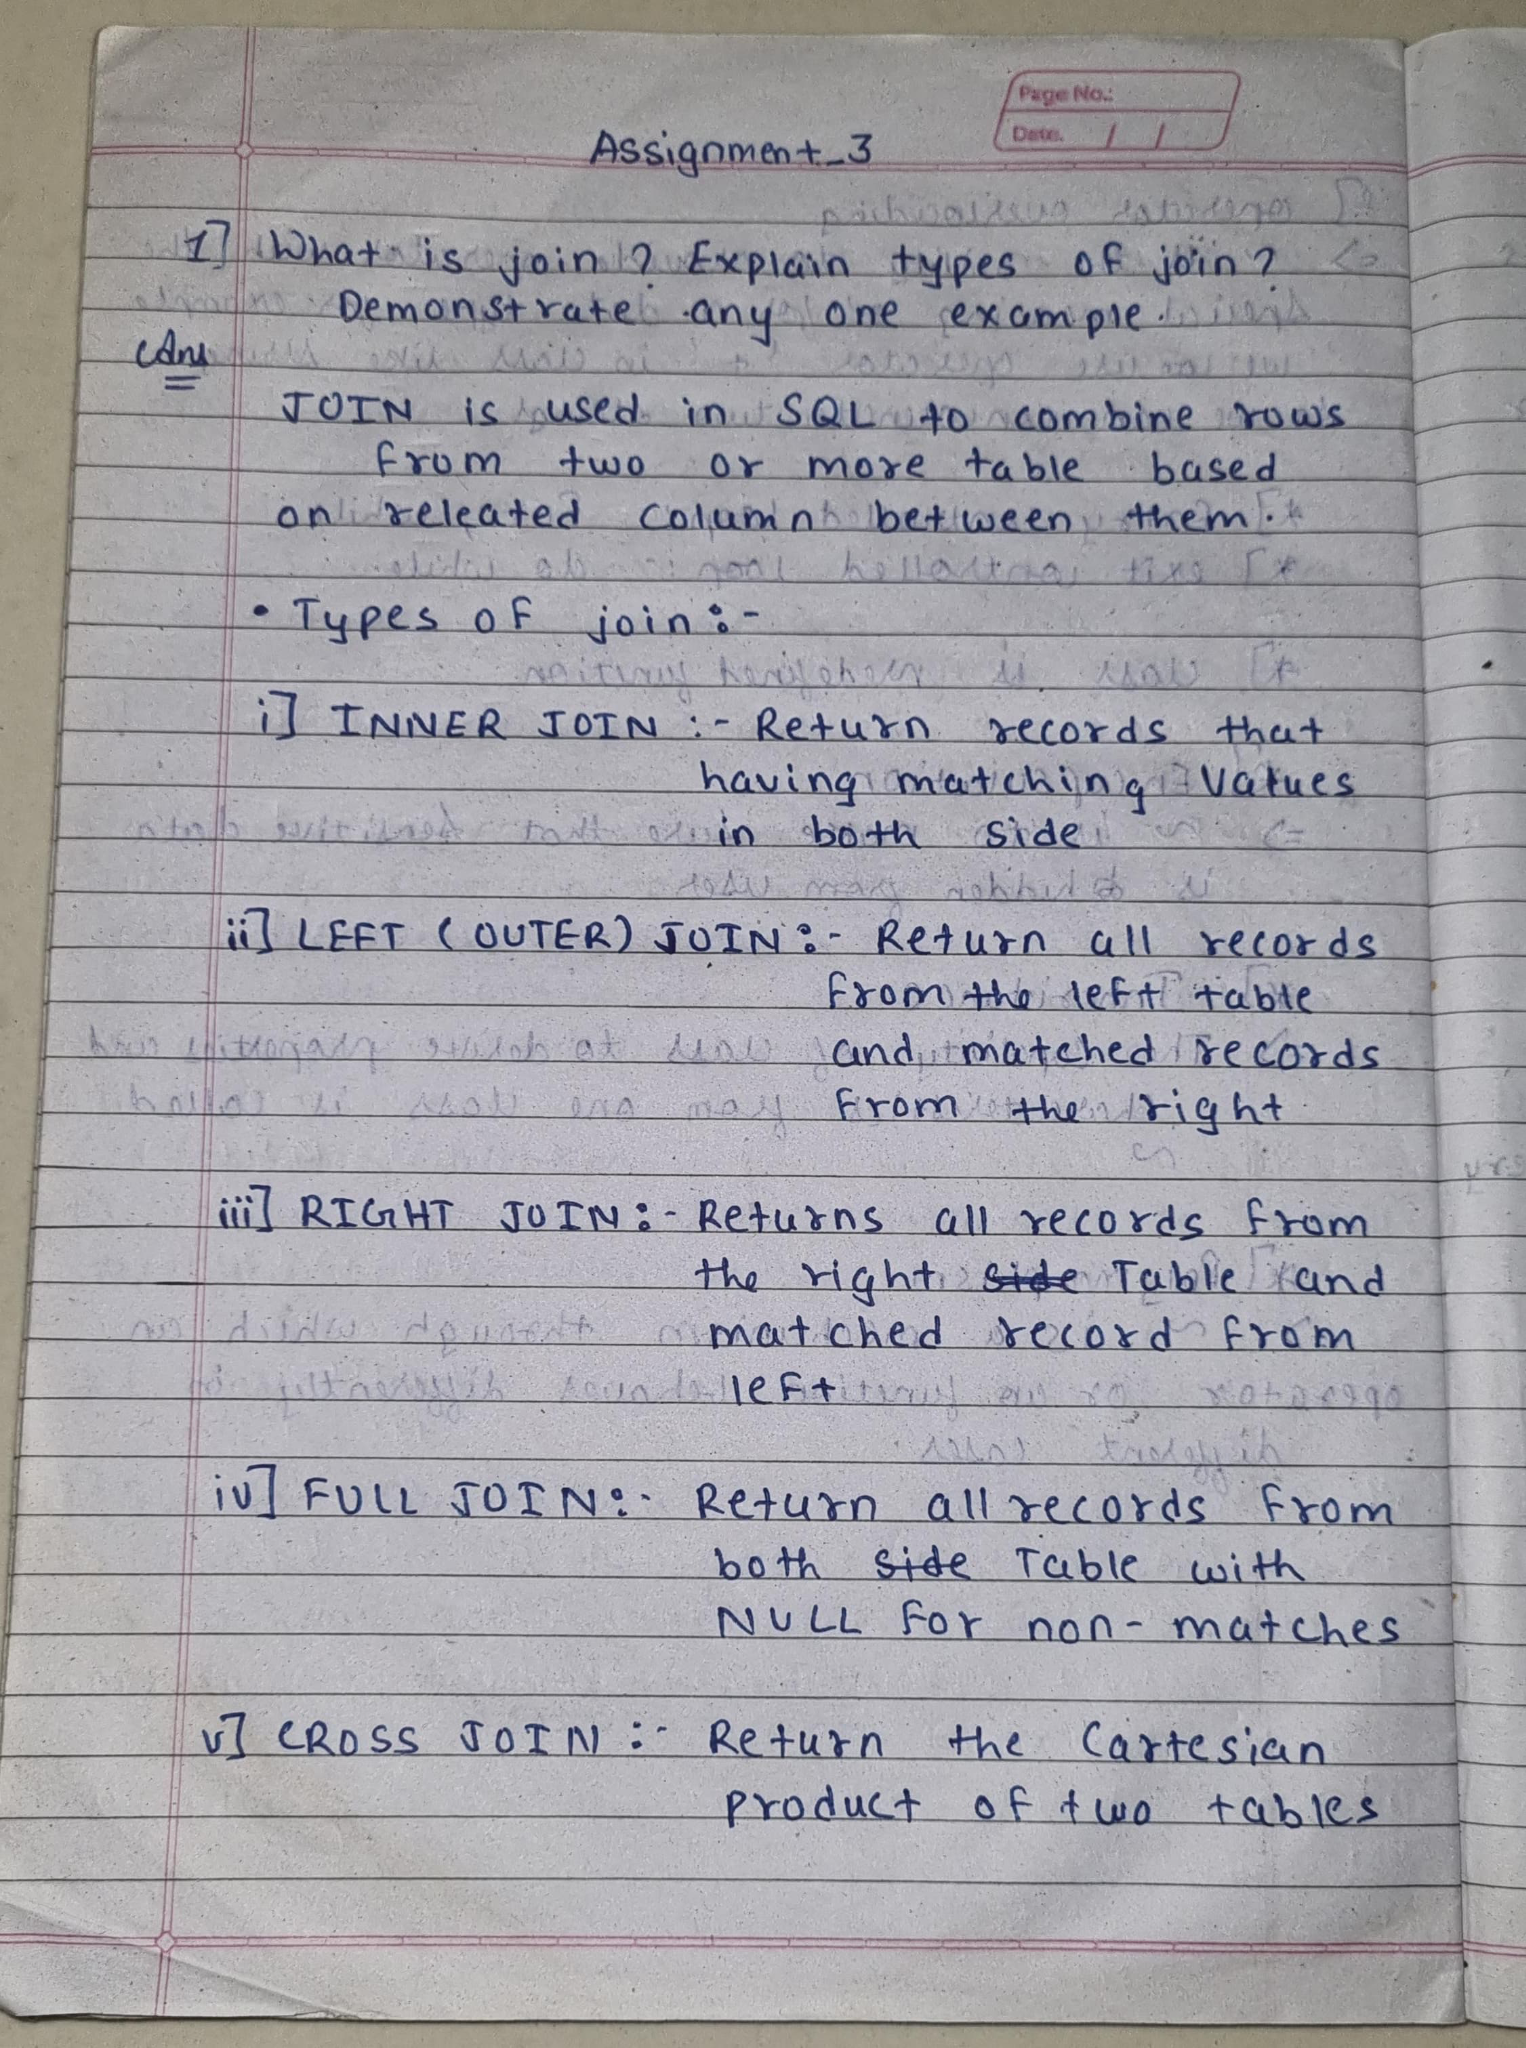 Page No.:
Date. / /
Assignment_3
1] What is join? Explain types of join?
Demonstrate any one example.
Ans
JOIN is used in SQL to combine rows
from two or more table based
on releated column between them.
• Types of join:-
i] INNER JOIN :- Return records that
having matching values
in both side
ii] LEFT (OUTER) JOIN :- Return all records
from the left table
and matched records
from the right
iii] RIGHT JOIN :- Returns all records from
the right side Table and
matched record from
left
iv] FULL JOIN :- Return all records from
both side Table with
NULL for non-matches
v] CROSS JOIN :- Return the Cartesian
product of two tables